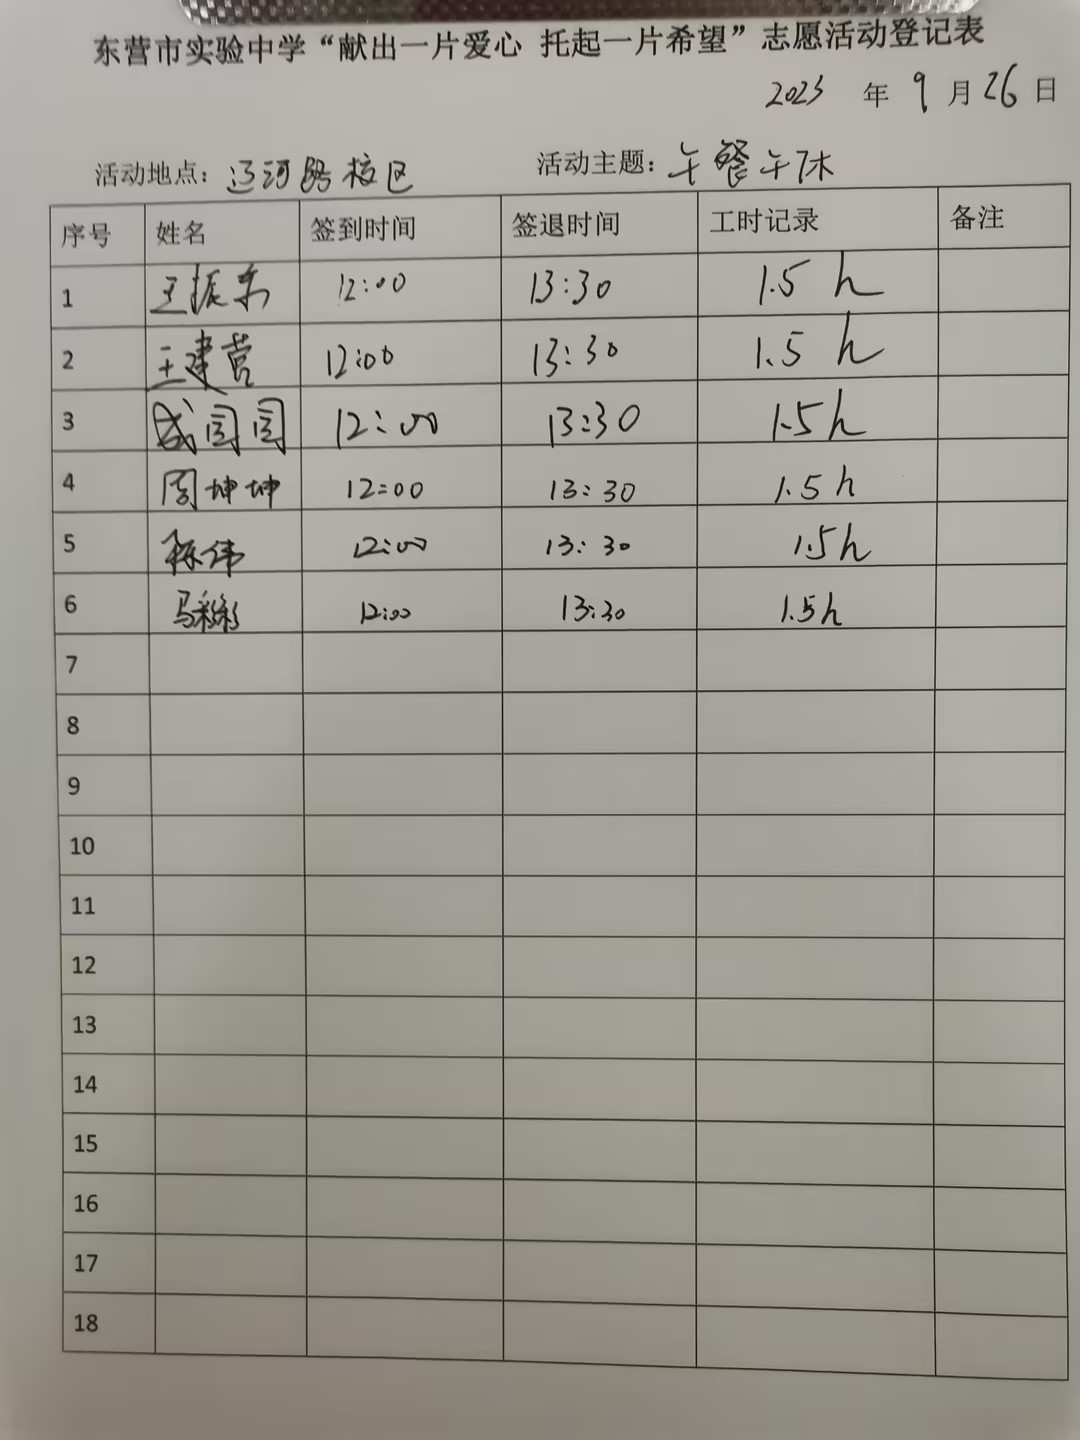 东营市实验中学“献出一片爱心 托起一片希望”志愿活动登记表
2023 年 9 月 26 日
活动地点：辽河路校区 活动主题：午餐午休
序号 姓名 签到时间 签退时间 工时记录 备注
1 王振东 12:00 13:30 1.5 h
2 王建营 12:00 13:30 1.5 h
3 成闫闫 12:00 13:30 1.5h
4 周坤坤 12:00 13:30 1.5h
5 陈伟 12:00 13:30 1.5h
6 马彩彩 12:00 13:30 1.5h
7
8
9
10
11
12
13
14
15
16
17
18